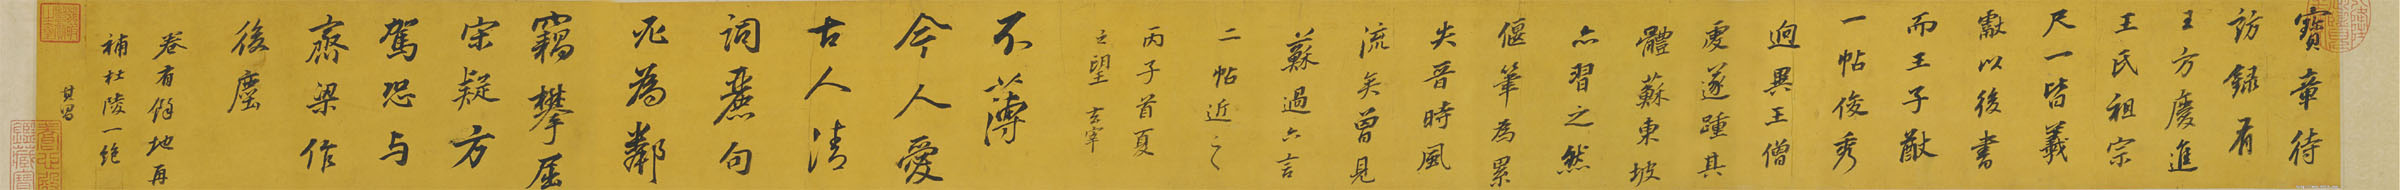 寶章待
訪録有
王方慶進
王氏祖宗
尺一皆羲
獻以後書
而王子猷
一帖俊秀
迥異王僧
虔遂踵其
體蘇東坡
亦習之然
偃筆為累
失晉時風
流矣曾見
蘇過六言
二帖近之
丙子首夏
之望 玄宰
不薄
今人愛
古人清
詞麗句
必為鄰
竊攀屈
宋疑方
駕恐与
齊梁作
後塵
卷有餘地再
補杜陵一絶
其昌